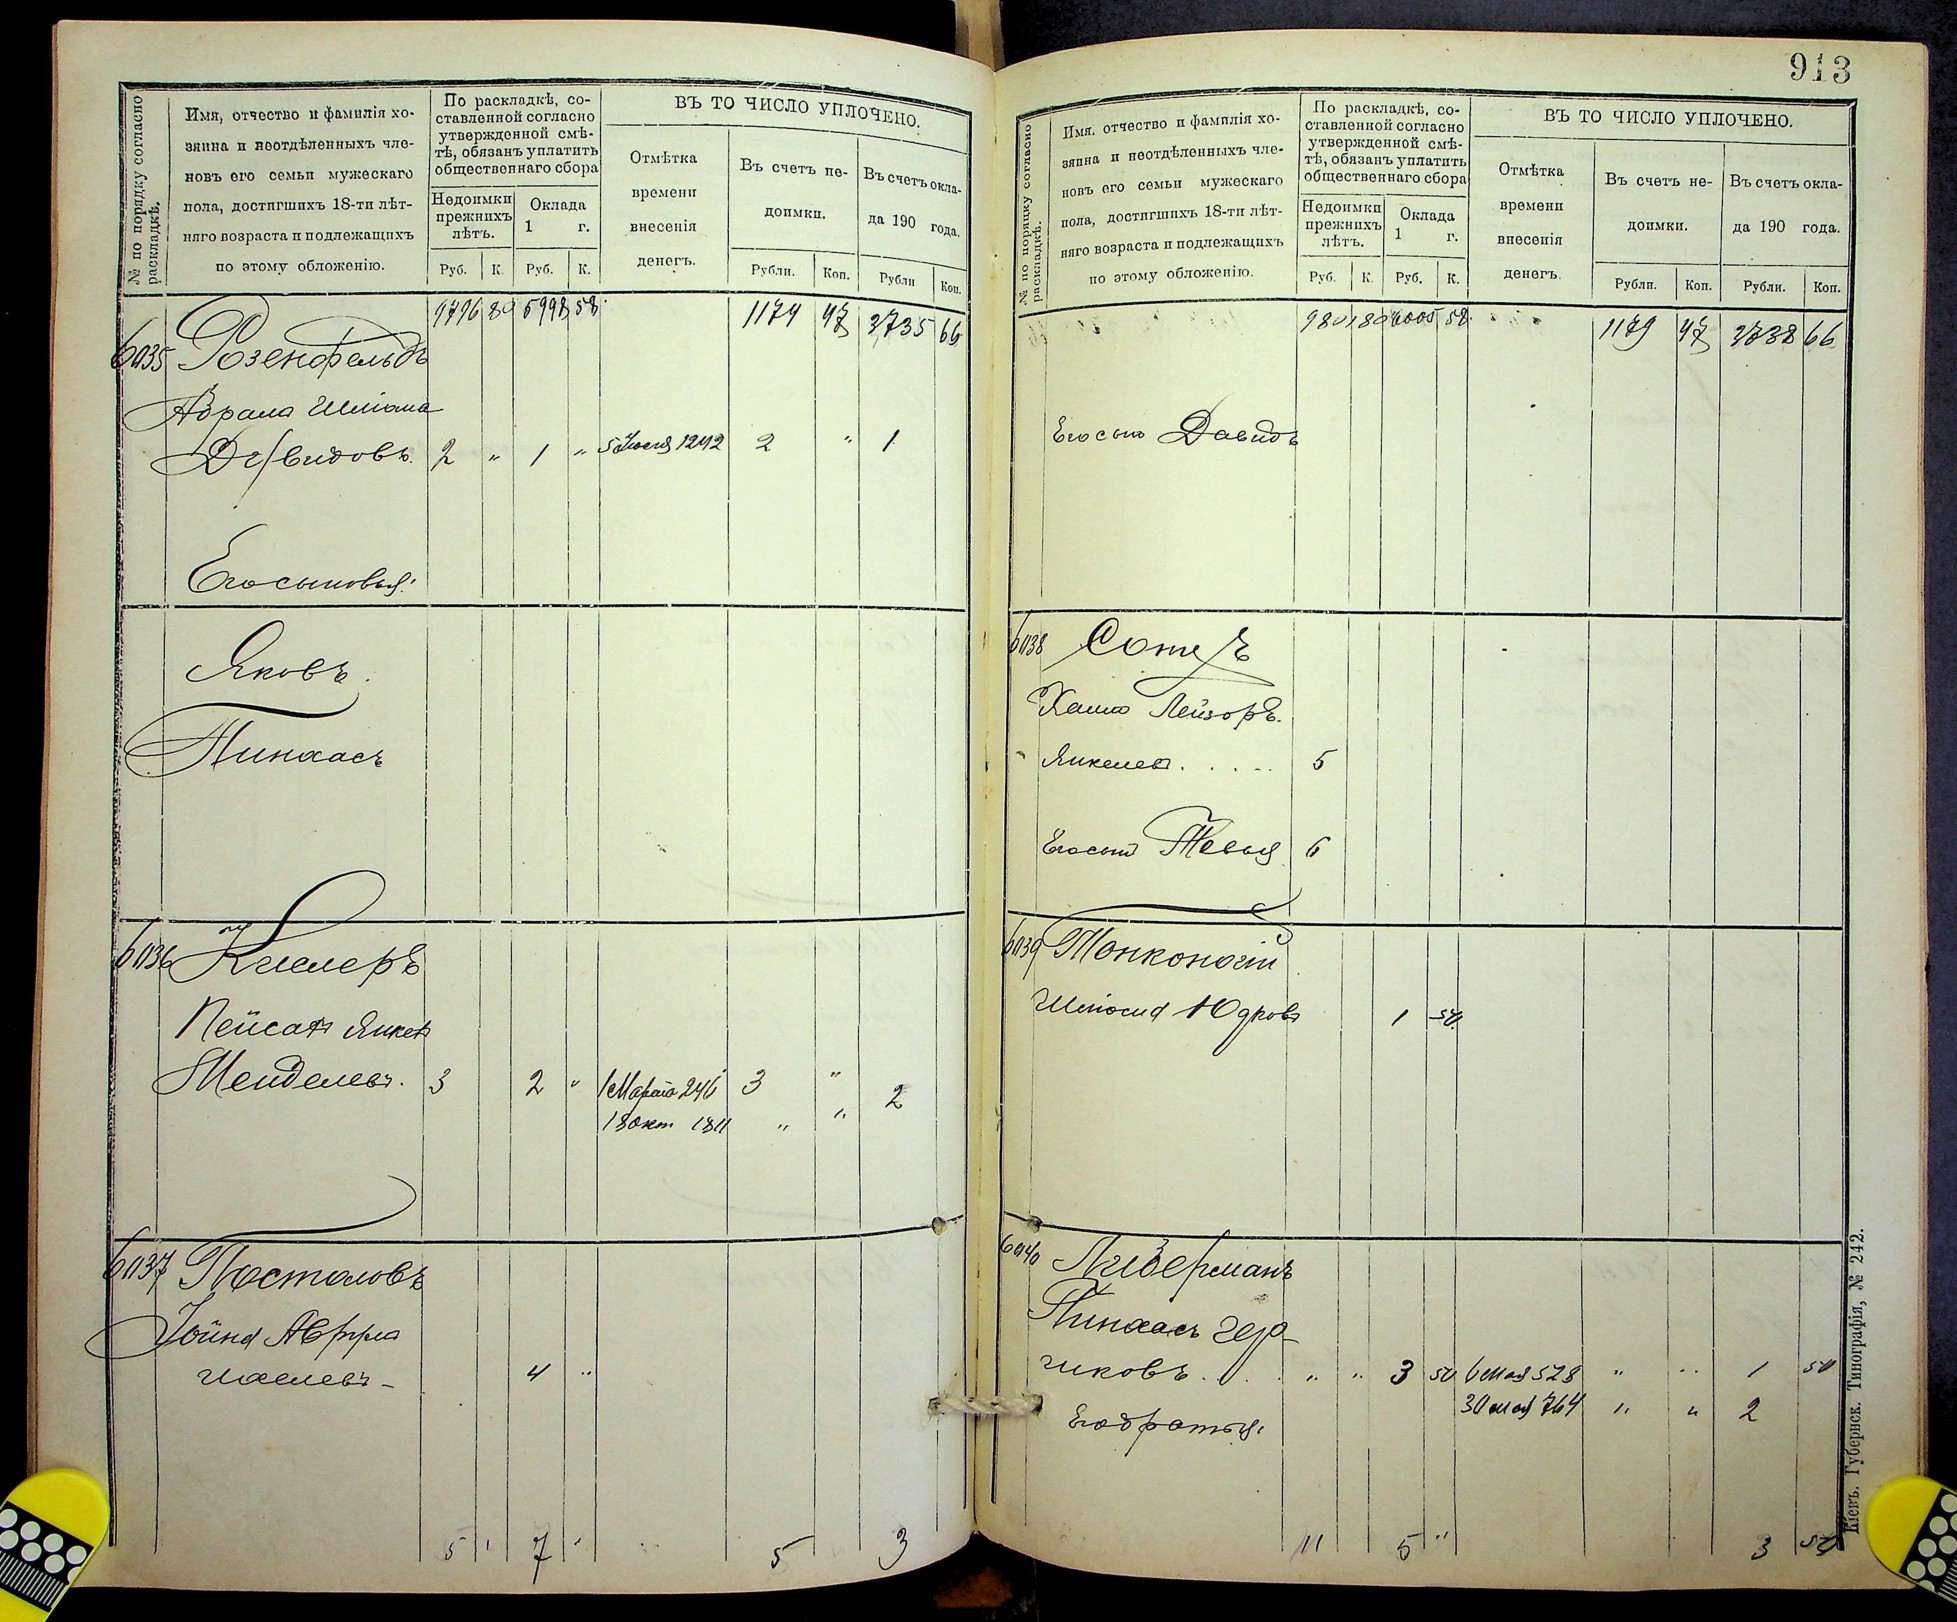 № по порядку согласно раскладкѣ.
Имя, отчество и фамилія хо-
зяина и неотдѣленныхъ чле-
новъ его семьи мужескаго
пола, достигшихъ 18-ти лѣт-
няго возраста и подлежащихъ
по этому обложенію.
По раскладкѣ, со-
ставленной согласно
утвержденной смѣ-
тѣ, обязанъ уплатить
общественнаго сбора
Недоимки прежнихъ лѣтъ.
Оклада 1 г.
Руб. К. Руб. К.
ВЪ ТО ЧИСЛО УПЛОЧЕНО.
Отмѣтка
времени
внесенія
денегъ.
Въ счетъ не-
доимки.
Въ счетъ окла-
да 190 года.
Рубли. Коп. Рубли Коп.
9796 80 5998 58 1174 47 3735 66
6035 Розенфельдъ
Абрамъ Шліома
Давидовъ. 2 " 1 " 5 Іюня 1242 2 " 1
Его сыновья:
Яковъ.
Пинхасъ
6036
Пейсахъ Янкель
Менделевъ. 3 2 " 1 Марта 246 3 " 2
18 окт 1811 " "
6037 Постоловъ
4 "
5 " 7 " 5 3
913
№ по порядку согласно раскладкѣ.
Имя. отчество и фамилія хо-
зяина и неотдѣленныхъ чле-
новъ его семьи мужескаго
пола, достигшихъ 18-ти лѣт-
няго возраста и подлежащихъ
по этому обложенію.
По раскладкѣ, со-
ставленной согласно
утвержденной смѣ-
тѣ, обязанъ уплатить
общественнаго сбора
Недоимки прежнихъ лѣтъ.
Оклада 1 г.
Руб. К. Руб. К.
ВЪ ТО ЧИСЛО УПЛОЧЕНО.
Отмѣтка
времени
внесенія
денегъ.
Въ счетъ не-
доимки.
Въ счетъ окла-
да 190 года.
Рубли. Коп. Рубли. Коп.
9801 80 6005 58 1179 47 3738 66
Его сынъ Давидъ
6038
Хаимъ Лейзоръ.
Янкелевъ. . . . . 5
Его сынъ Тевья 6
6039 Тонконогій
Шліома Юдковъ 1 50
6040 Либерманъ
Пинхасъ Гер-
шковъ . . . . " " 3 50 6 мая 528 " " 1 50
30 мая 764 " " 2
Его братья:
11 5 " 3 50
Кіевъ. Губернск. Типографія, № 242.